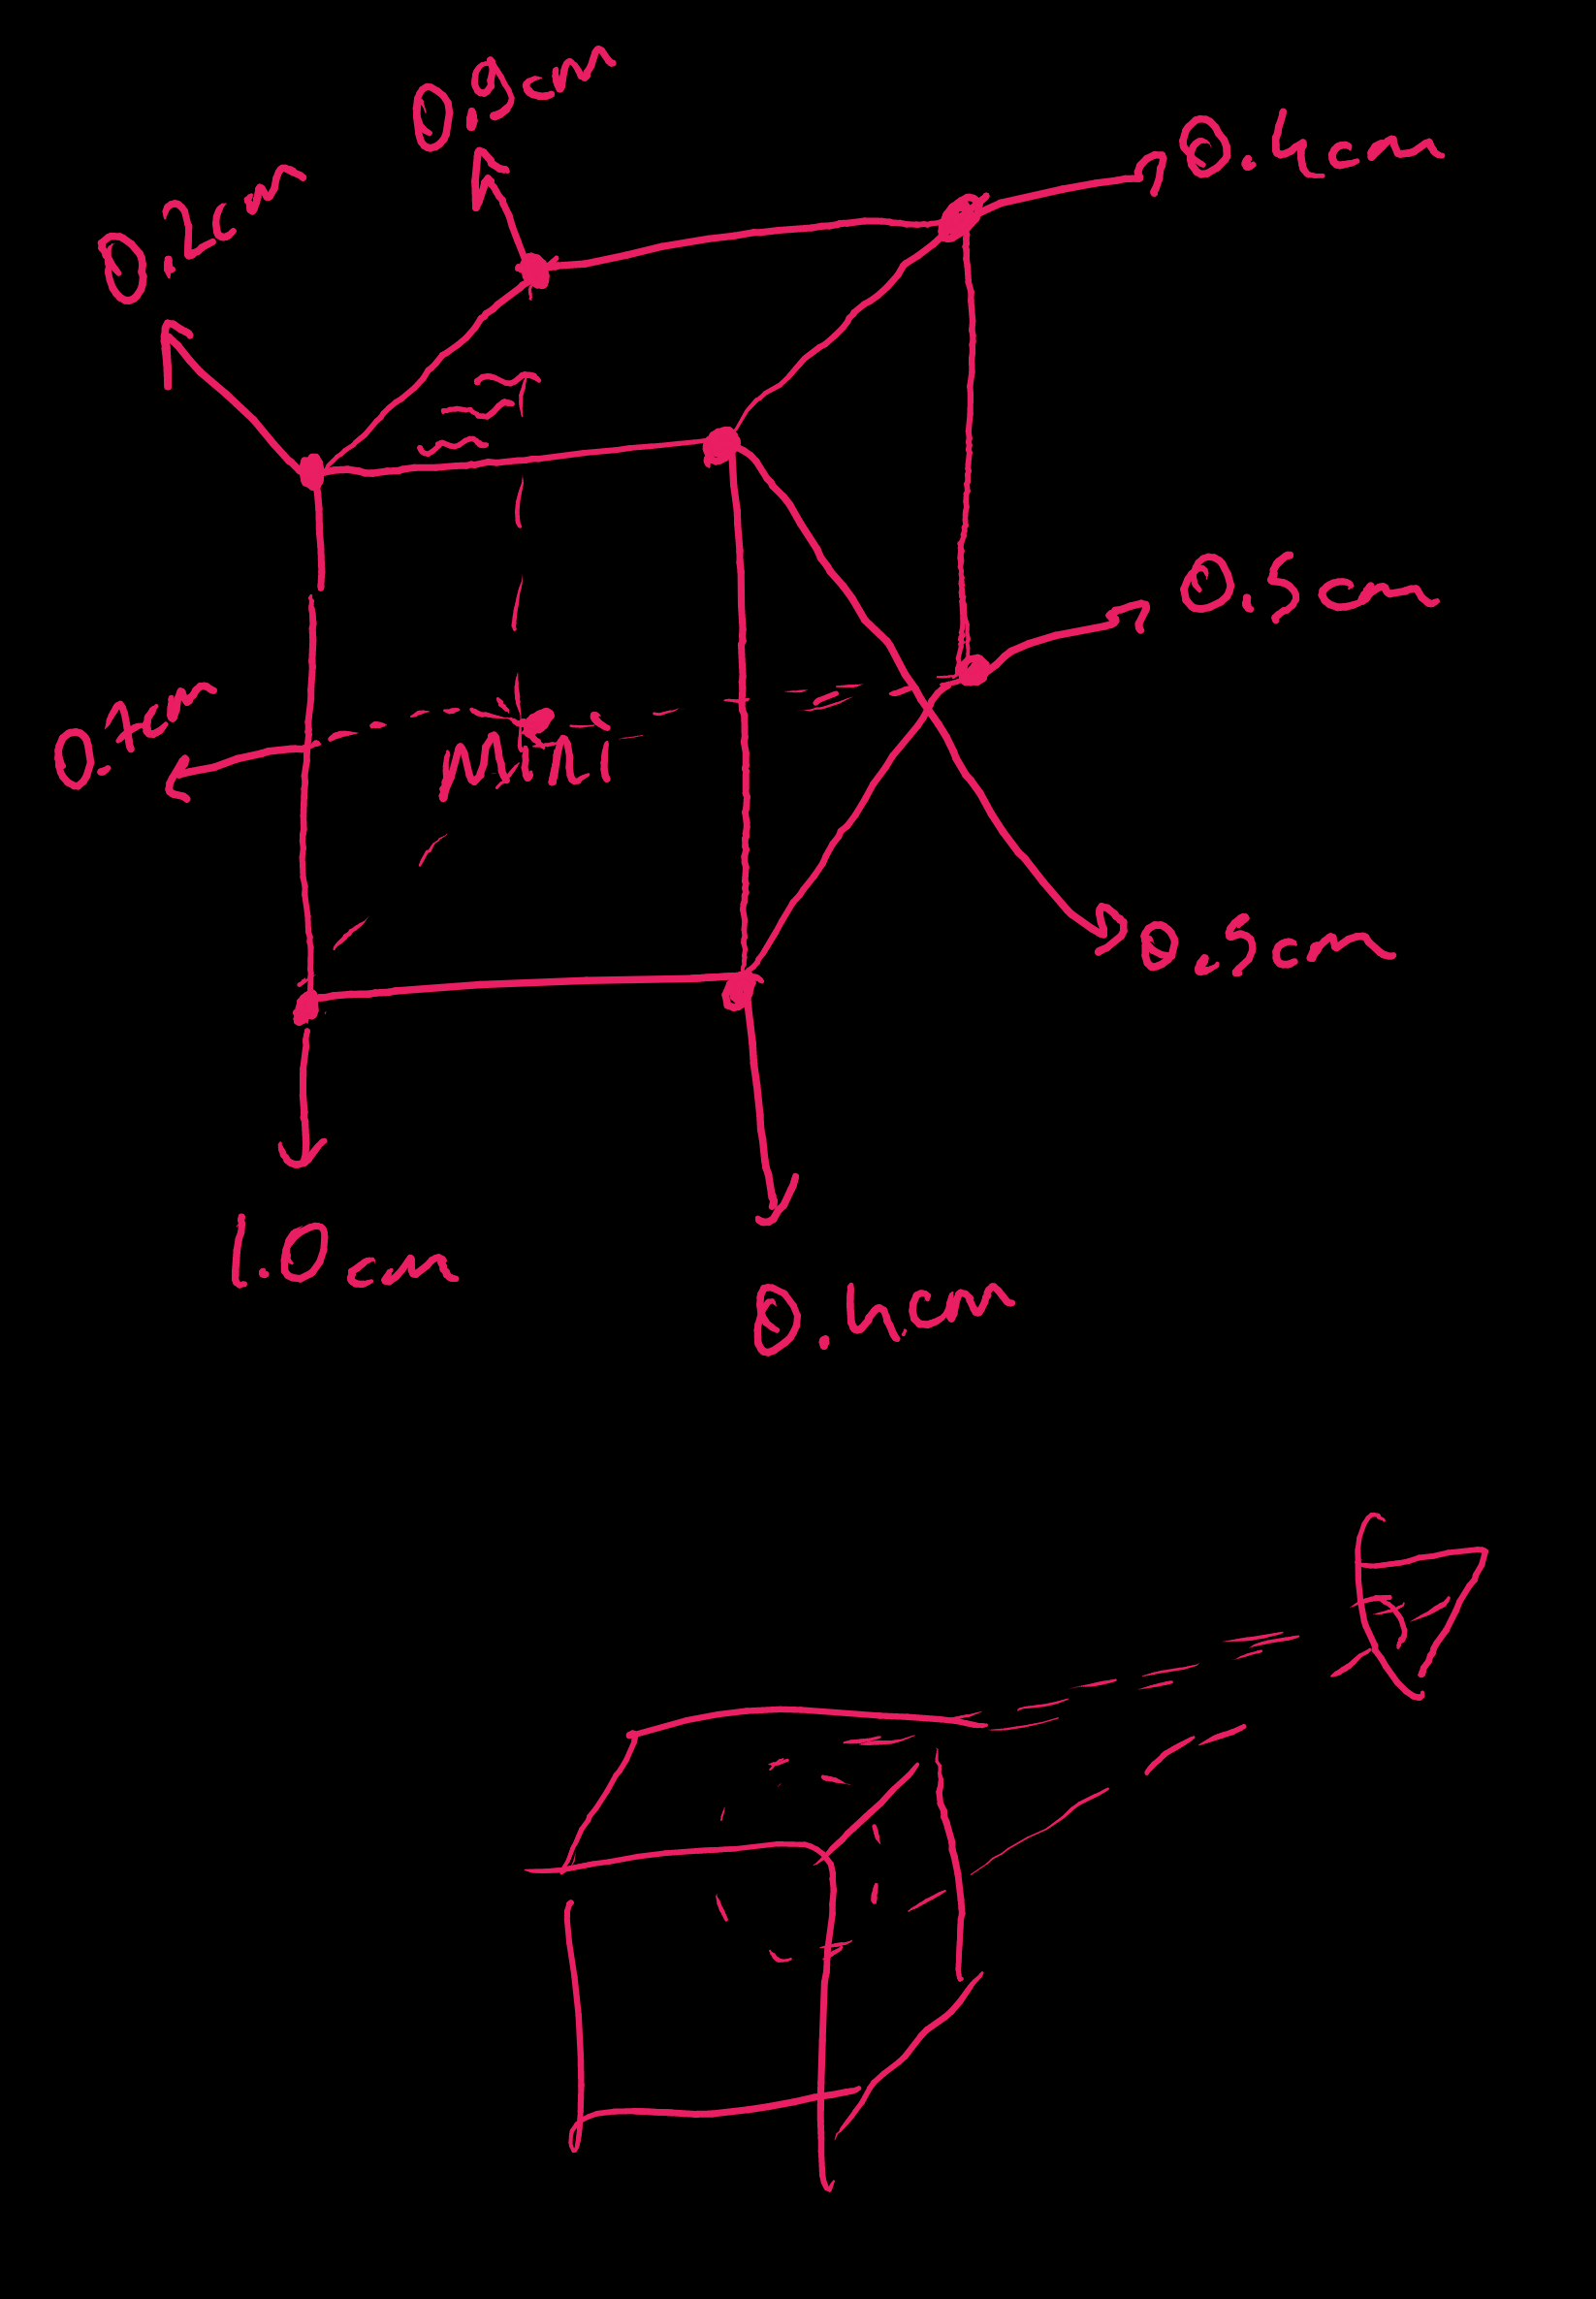 0.9cm
0.4cm
0.2cm
0.5cm
0.7cm
0.5cm
1.0cm
0.4cm